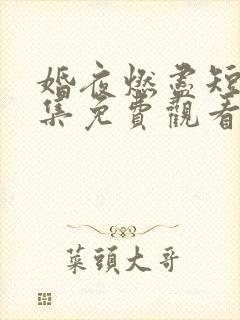 婚夜燃盡短
集免費觀看
菜頭大哥